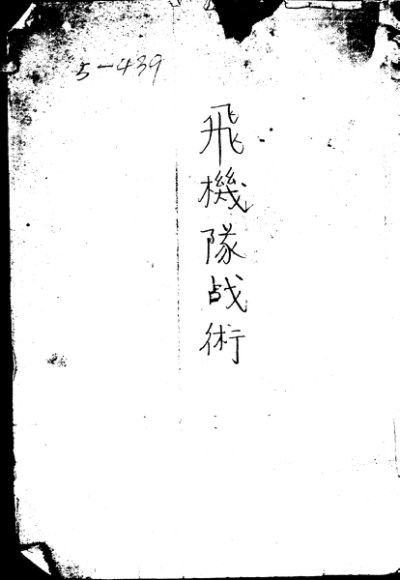 5-439
飛機隊战術